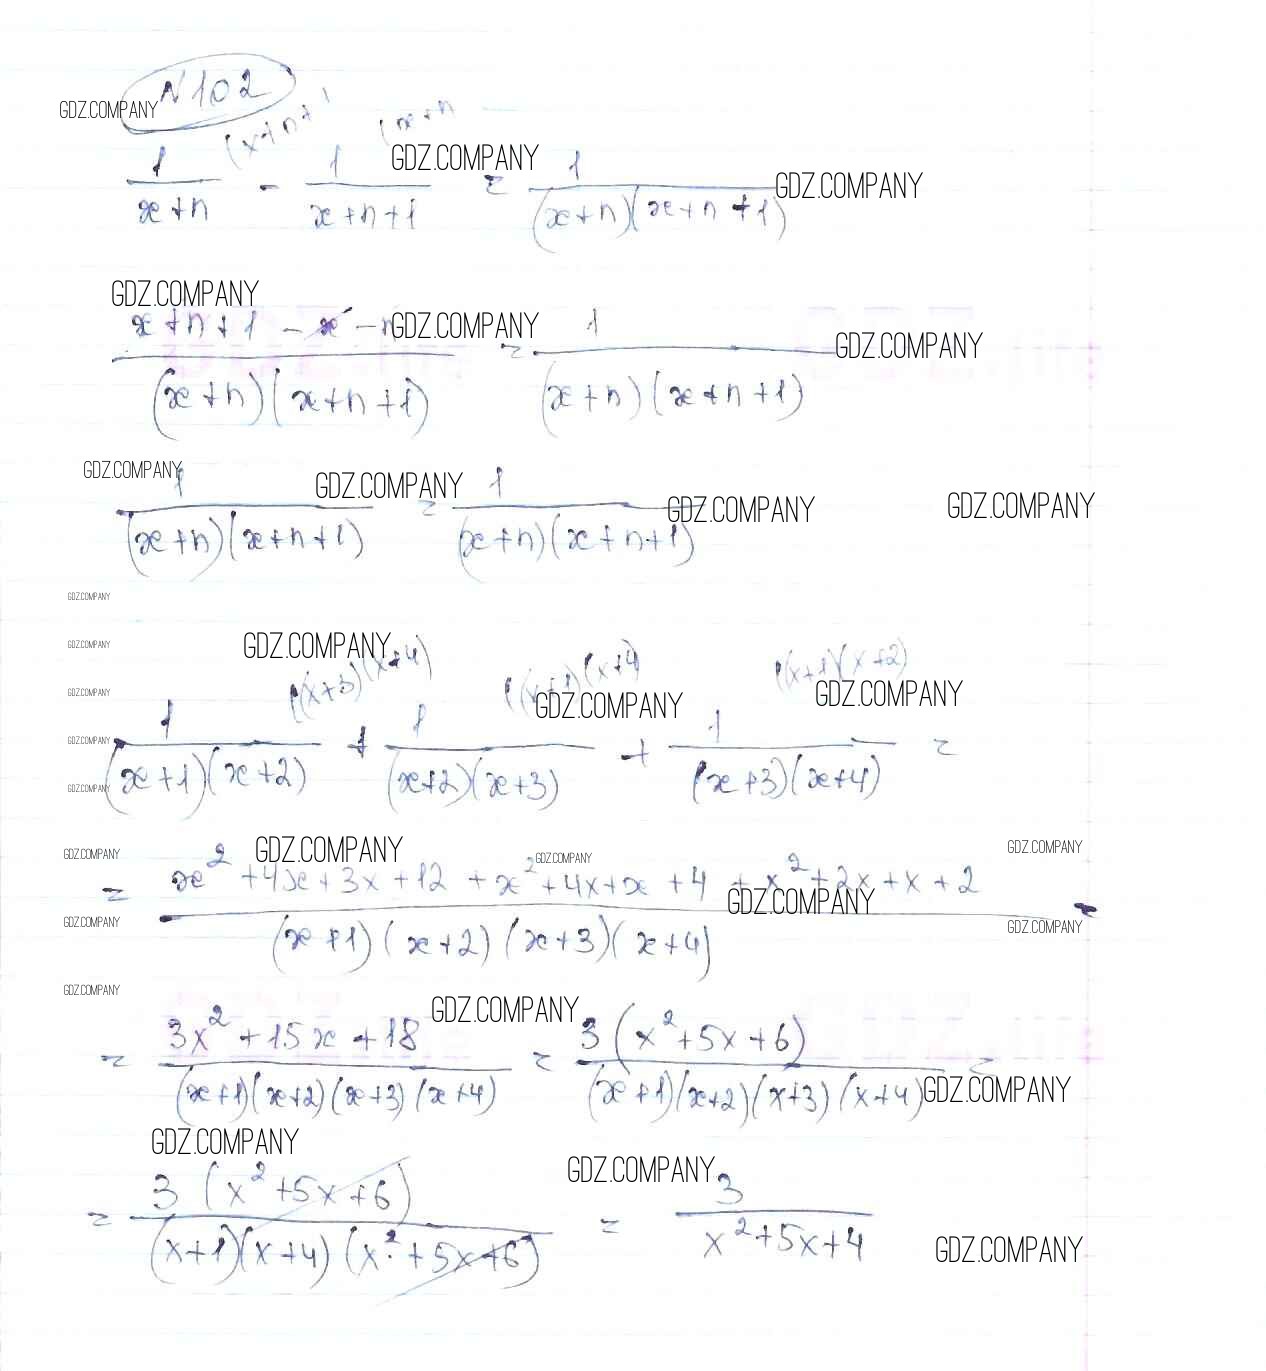 N 102
GDZ.COMPANY
(x+n+1 (x+n
1/(x+n) - 1/(x+n+1) = 1/((x+n)(x+n+1))
GDZ.COMPANY GDZ.COMPANY
GDZ.COMPANY
(x+n+1-x-n)/((x+n)(x+n+1)) = 1/((x+n)(x+n+1))
GDZ.COMPANY GDZ.COMPANY
GDZ.COMPANY GDZ.COMPANY GDZ.COMPANY GDZ.COMPANY
1/((x+n)(x+n+1)) = 1/((x+n)(x+n+1))
GDZ.COMPANY
GDZ.COMPANY GDZ.COMPANY
((x+3)(x+4) ((x+1)(x+4) ((x+1)(x+2)
GDZ.COMPANY GDZ.COMPANY GDZ.COMPANY
1/((x+1)(x+2)) + 1/((x+2)(x+3)) + 1/((x+3)(x+4)) =
GDZ.COMPANY
GDZ.COMPANY
GDZ.COMPANY GDZ.COMPANY GDZ.COMPANY GDZ.COMPANY
= (x²+4x+3x+12+x²+4x+x+4+x²+2x+x+2)/((x+1)(x+2)(x+3)(x+4)) =
GDZ.COMPANY GDZ.COMPANY GDZ.COMPANY
GDZ.COMPANY GDZ.COMPANY
= (3x²+15x+18)/((x+1)(x+2)(x+3)(x+4)) = 3(x²+5x+6)/((x+1)(x+2)(x+3)(x+4)) =
GDZ.COMPANY
GDZ.COMPANY GDZ.COMPANY
= 3(x²+5x+6)/((x+1)(x+4)(x²+5x+6)) = 3/(x²+5x+4)
GDZ.COMPANY